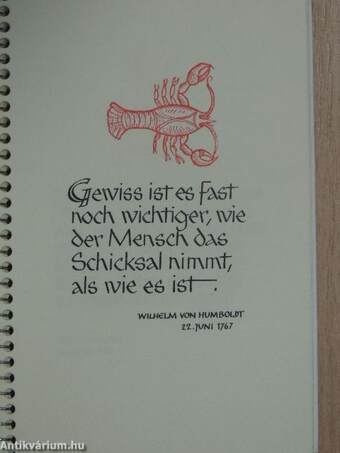 Gewiss ist es fast
noch wichtiger, wie
der Mensch das
Schicksal nimmt,
als wie es ist.
WILHELM VON HUMBOLDT
22. JUNI 1767
Antikvárium.hu